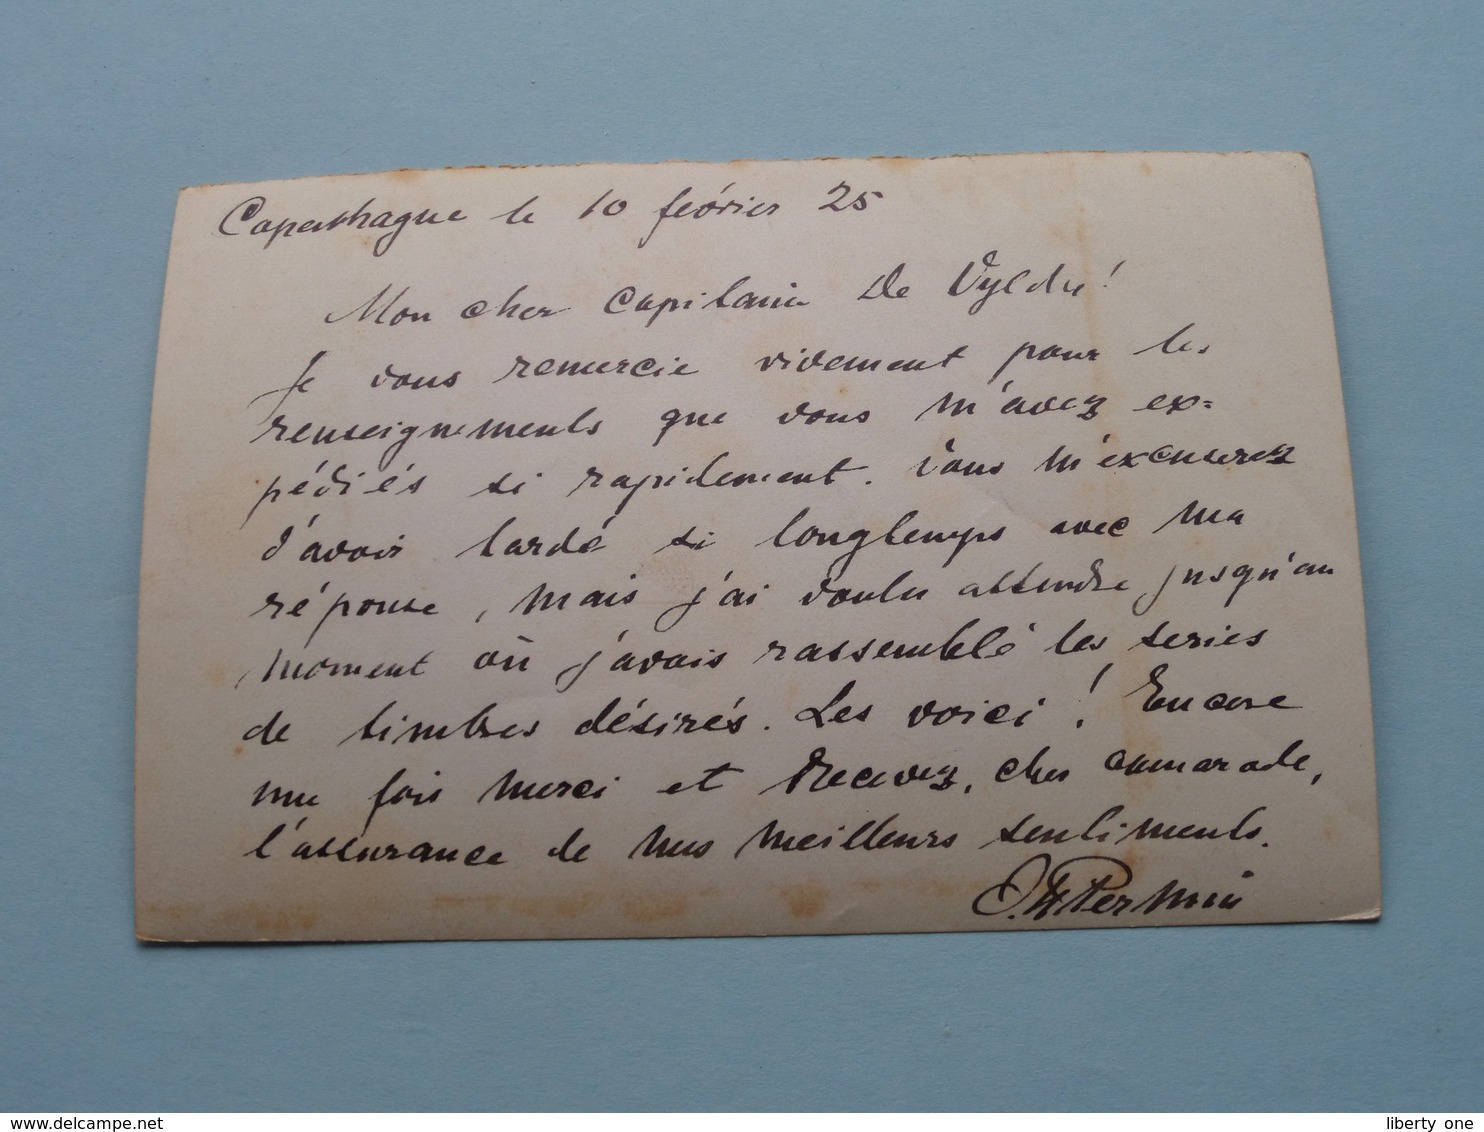 Copenhague le 10 février 25
Mon cher Capitaine De Vyldre!
Je vous remercie vivement pour les
renseignements que vous m'avez ex=
pédiés si rapidement. Vous m'excuserez
d'avoir tardé si longtemps avec ma
réponse, mais j'ai voulu attendre jusqu'au
moment où j'avais rassemblé les series
de timbres désirés. Les voici! Encore
une fois merci et recevez, cher camarade,
l'assurance de mes meilleurs sentiments.
liberty one